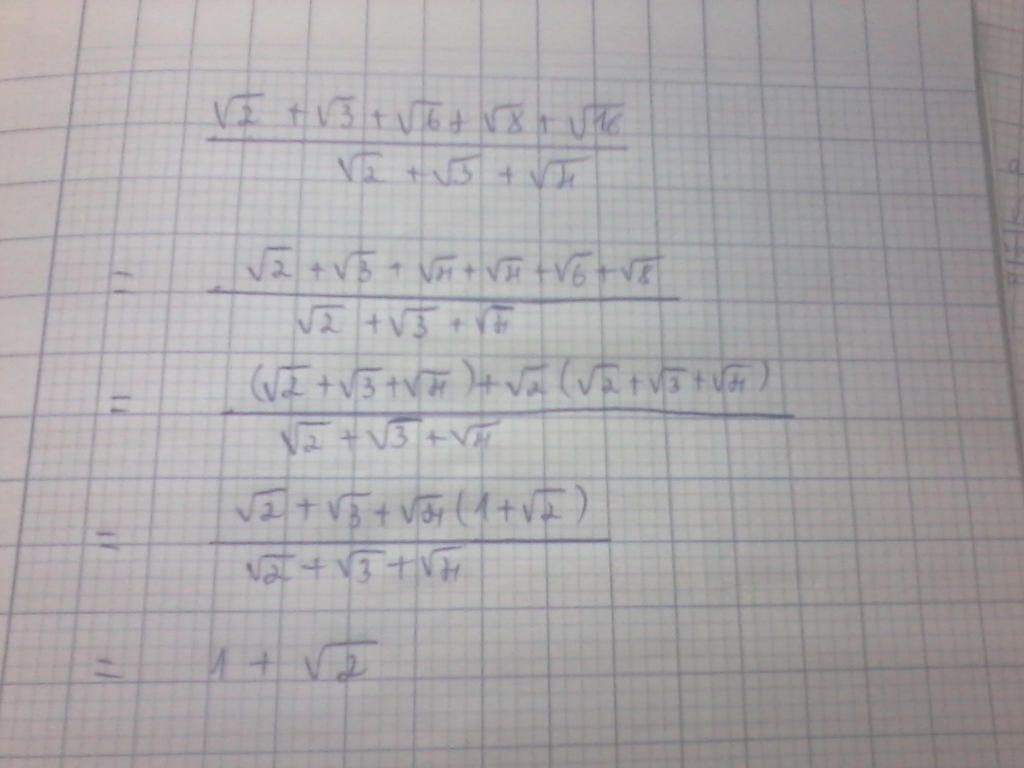 √2 + √3 + √6 + √8 + √16
√2 + √3 + √4
= √2 + √3 + √4 + √4 + √6 + √8
√2 + √3 + √4
= (√2 + √3 + √4) + √2 (√2 + √3 + √4)
√2 + √3 + √4
= √2 + √3 + √4 (1 + √2)
√2 + √3 + √4
= 1 + √2